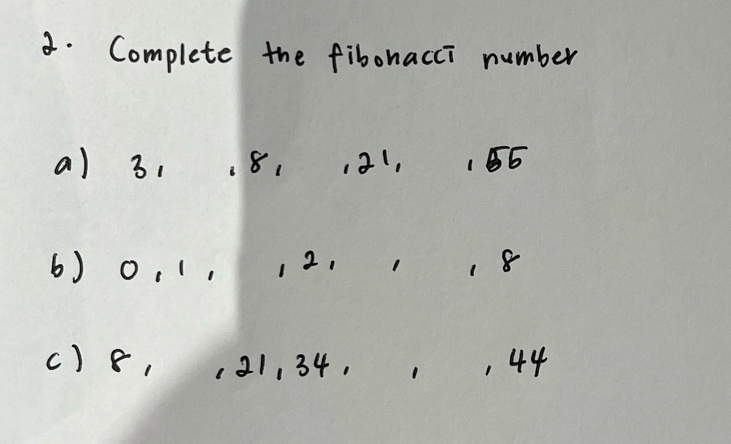 2. Complete the fibonacci number
a) 3, , 8, , 21, , 55
b) 0, 1, , 2, , , 8
c) 8, , 21, 34, , , 44